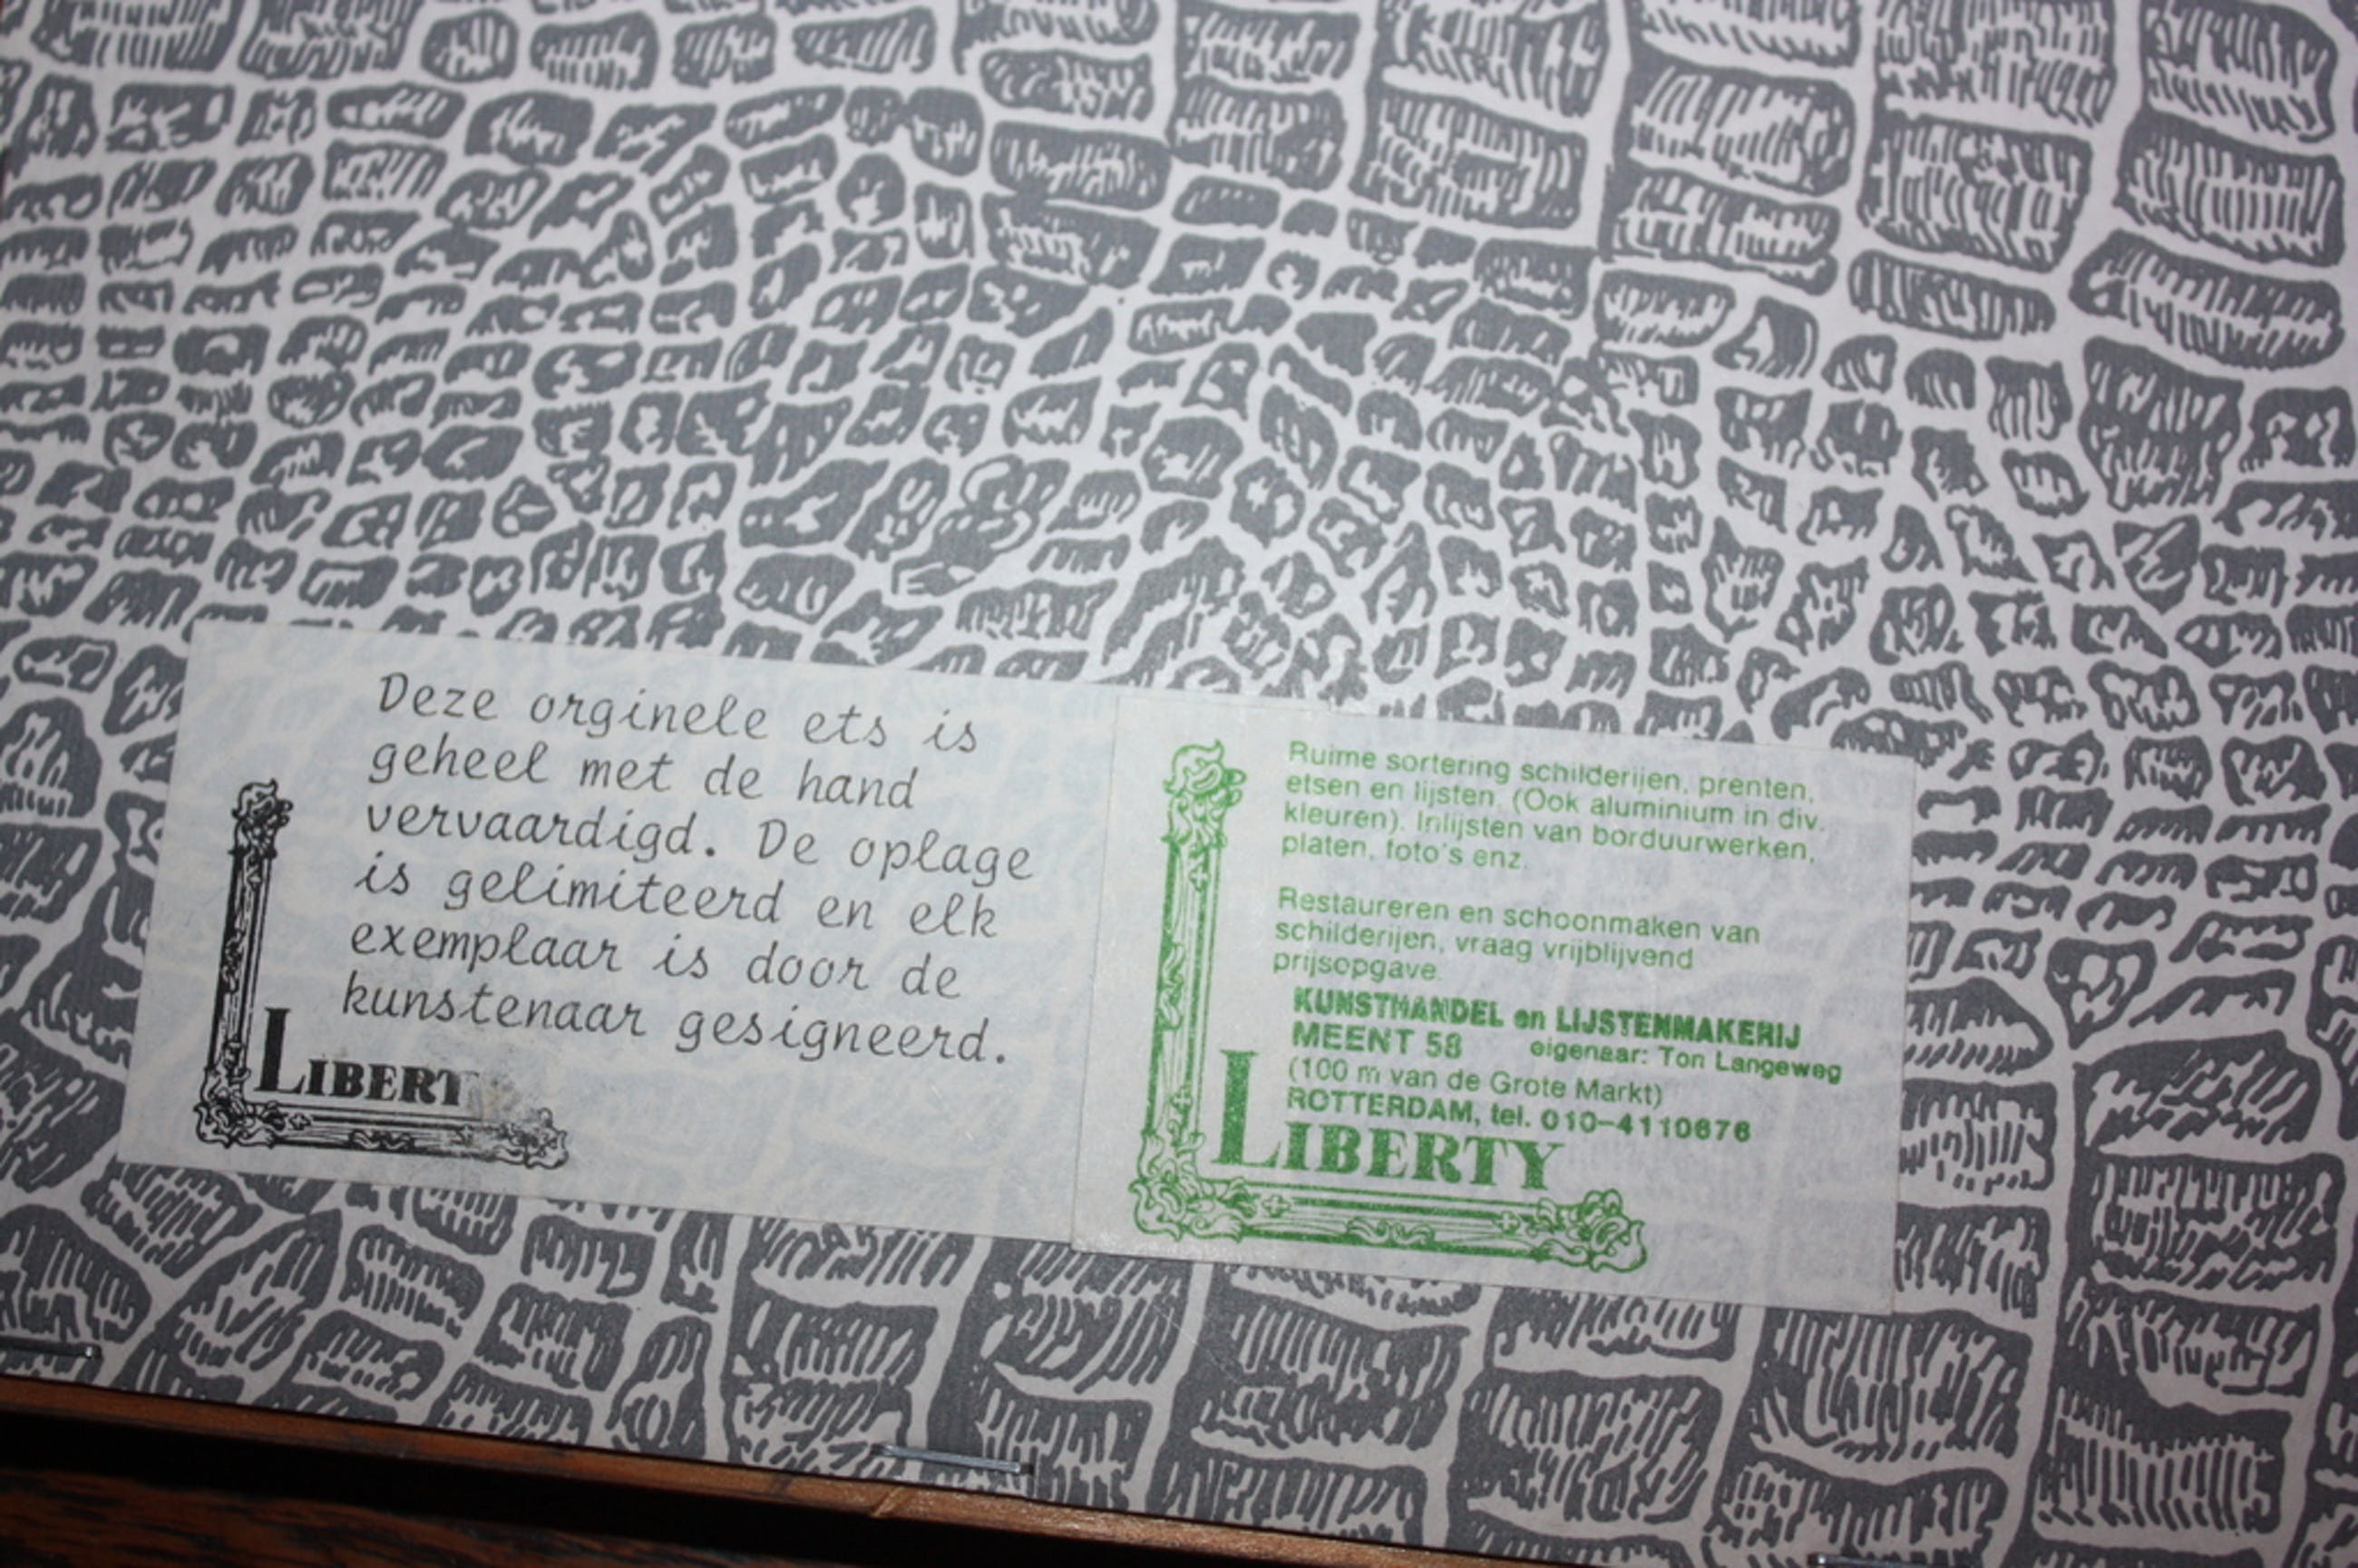 Deze orginele ets is
geheel met de hand
vervaardigd. De oplage
is gelimiteerd en elk
exemplaar is door de
kunstenaar gesigneerd.
LIBERT
Ruime sortering schilderijen, prenten,
etsen en lijsten, (Ook aluminium in div.
kleuren). Inlijsten van borduurwerken,
platen, foto's enz.
Restaureren en schoonmaken van
schilderijen, vraag vrijblijvend
prijsopgave.
KUNSTHANDEL en LIJSTENMAKERIJ
MEENT 58 eigenaar: Ton Langeweg
(100 m van de Grote Markt)
ROTTERDAM, tel. 010-4110676
LIBERTY